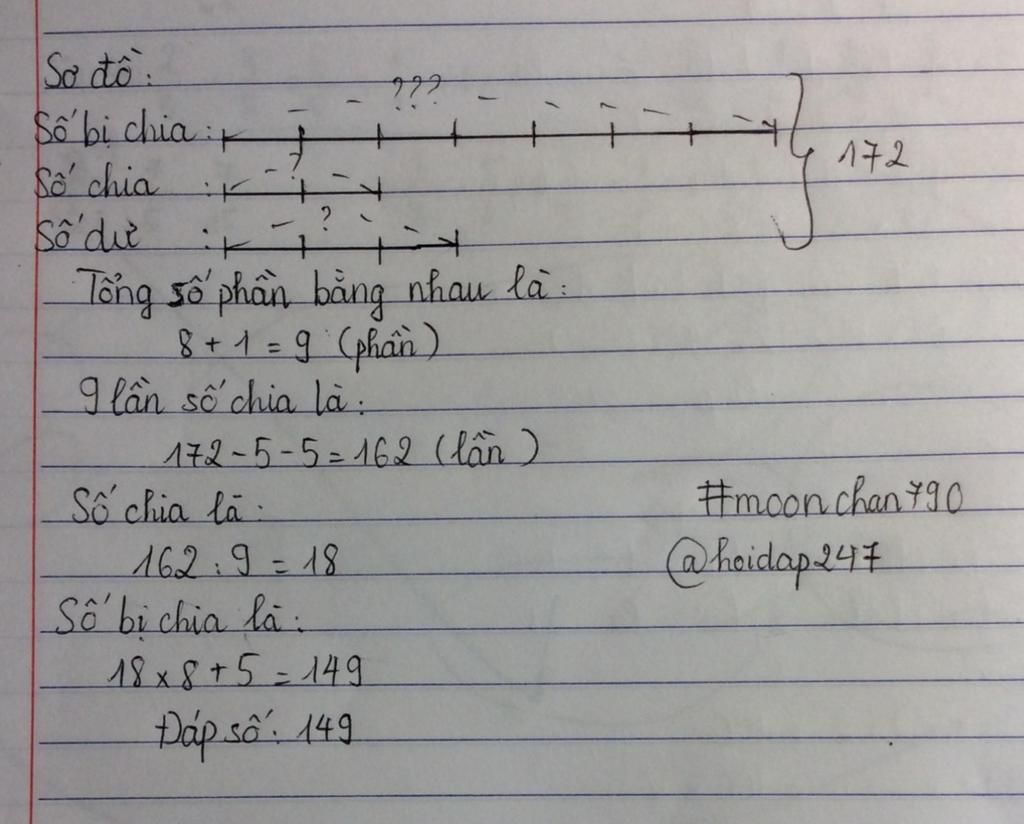 Sơ đồ:
???
Số bị chia:
?
172
Số chia :
?
Số dư :
Tổng số phần bằng nhau là:
8 + 1 = 9 (phần)
9 lần số chia là:
172 - 5 - 5 = 162 (lần)
Số chia là:
#moonchan790
162 : 9 = 18
@hoidap247
Số bị chia là:
18 x 8 + 5 = 149
Đáp số: 149